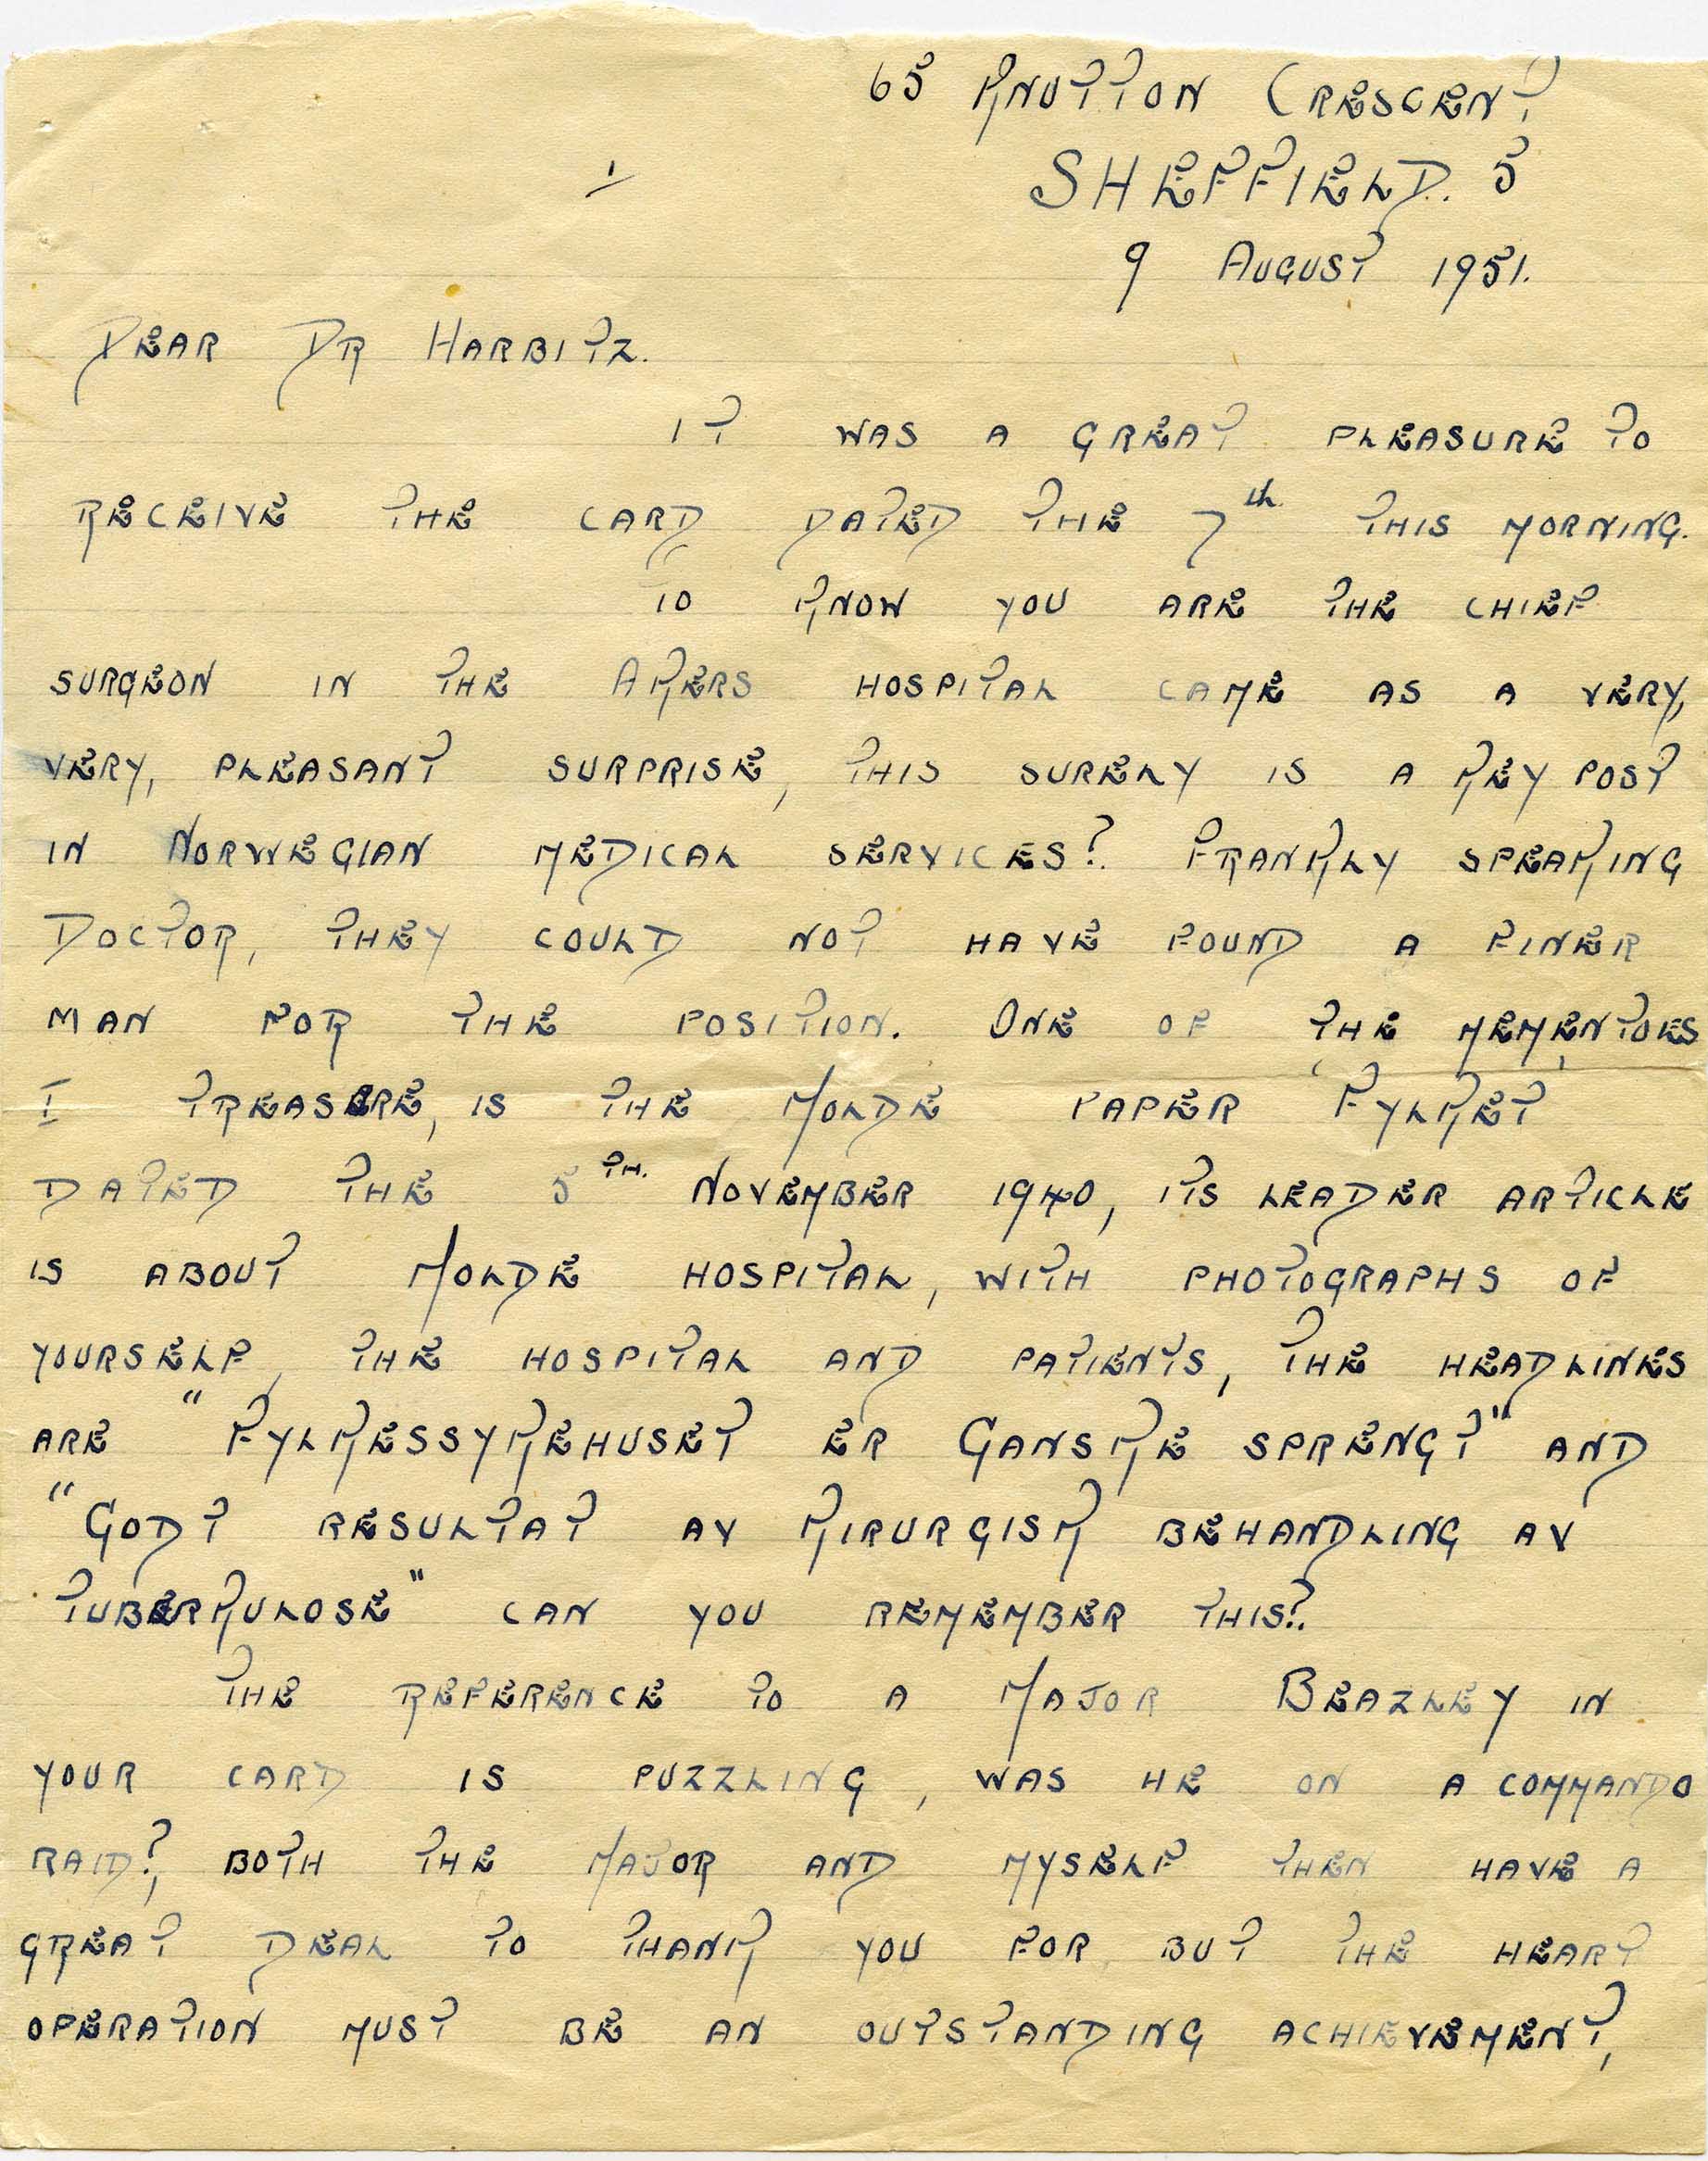 65 KNUTTON CRESCENT
SHEFFIELD. 5
1
9 AUGUST 1951.
DEAR DR HARBITZ.
IT WAS A GREAT PLEASURE TO
RECEIVE THE CARD DATED THE 7th THIS MORNING.
TO KNOW YOU ARE THE CHIEF
SURGEON IN THE AKERS HOSPITAL CAME AS A VERY,
VERY, PLEASANT SURPRISE, THIS SURELY IS A KEY POST
IN NORWEGIAN MEDICAL SERVICES? FRANKLY SPEAKING
DOCTOR, THEY COULD NOT HAVE FOUND A FINER
MAN FOR THE POSITION. ONE OF THE MEMENTOES
I TREASURE, IS THE MOLDE PAPER 'FYLKET'
DATED THE 5TH. NOVEMBER 1940, ITS LEADER ARTICLE
IS ABOUT MOLDE HOSPITAL, WITH PHOTOGRAPHS OF
YOURSELF, THE HOSPITAL AND PATIENTS, THE HEADLINES
ARE "FYLKESSYKEHUSET ER GANSKE SPRENGT" AND
"GODT RESULTAT AV KIRURGISK BEHANDLING AV
TUBERKULOSE" CAN YOU REMEMBER THIS?.
THE REFERENCE TO A MAJOR BEAZLEY IN
YOUR CARD IS PUZZLING, WAS HE ON A COMMANDO
RAID?, BOTH THE MAJOR AND MYSELF THEN HAVE A
GREAT DEAL TO THANK YOU FOR, BUT THE HEART
OPERATION MUST BE AN OUTSTANDING ACHIEVEMENT,